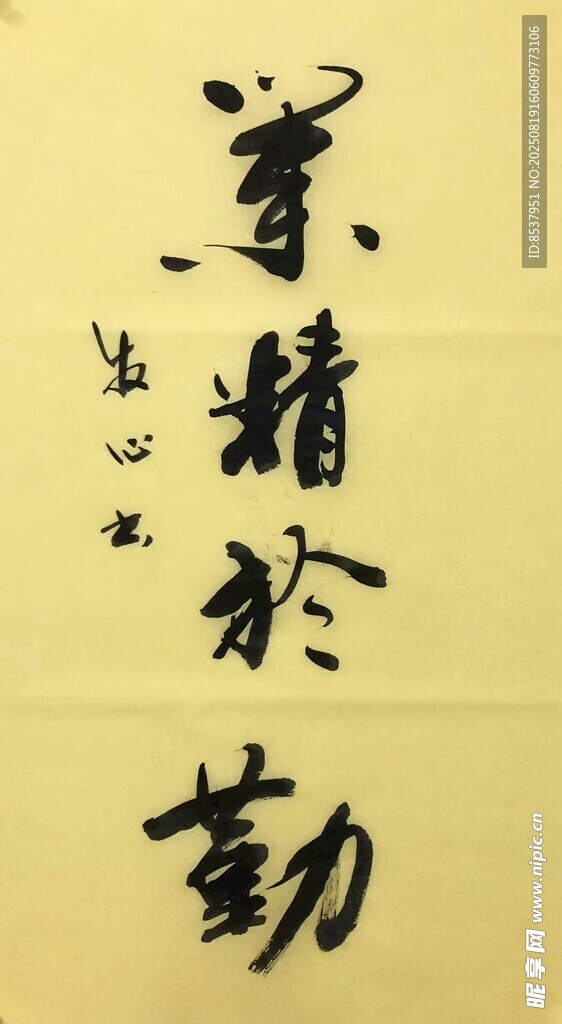 業精於勤
牧心书
ID:8537951 NO:20250819160609773106
昵享网 www.nipic.cn